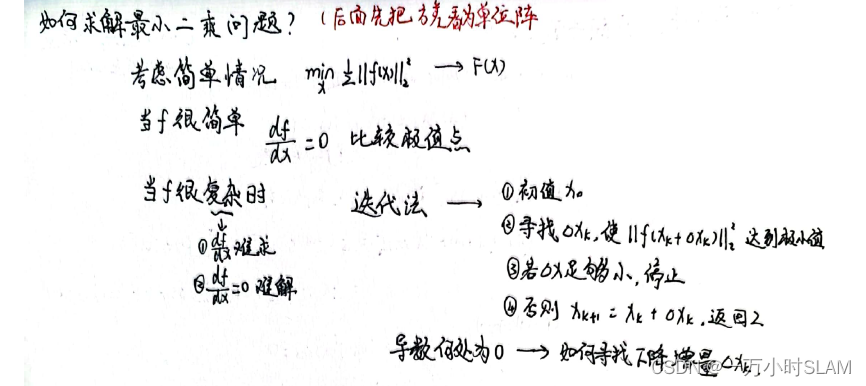 如何求解最小二乘问题？（后面先把方差看为单位阵
考虑简单情况 min_x ½||f(x)||₂² → F(x)
当f很简单 df/dx = 0 比较极值点
当f很复杂时 迭代法 →
① df/dx 难求
② df/dx = 0 难解
①初值x₀
②寻找Δxₖ,使||f(xₖ+Δxₖ)||₂² 达到极小值
③若Δx足够小,停止
④否则 xₖ₊₁ = xₖ + Δxₖ,返回2
导数何处为0 → 如何寻找下降增量Δxₖ
CSDN @一万小时SLAM